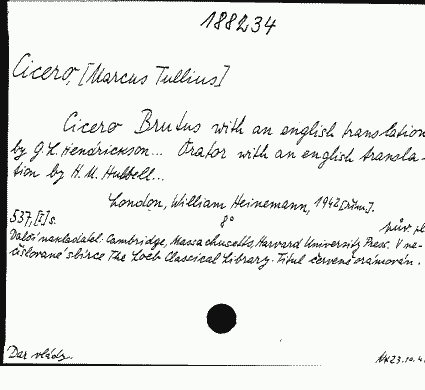 188234
Cicero, [Marcus Tullius]
Cicero Brutus with an english translation
by G. L. Hendrickson... Orator with an english transla-
tion by H. M. Hubbell...
London, William Heinemann, 1942 [důmn].
537, [1] s. 8° pův. pl.
Další nakladatel: Cambridge, Massachusetts, Harvard University Press. V ne-
číslované sbírce The Loeb Classical Library. Titul červeně orámován.
Dar vlády.